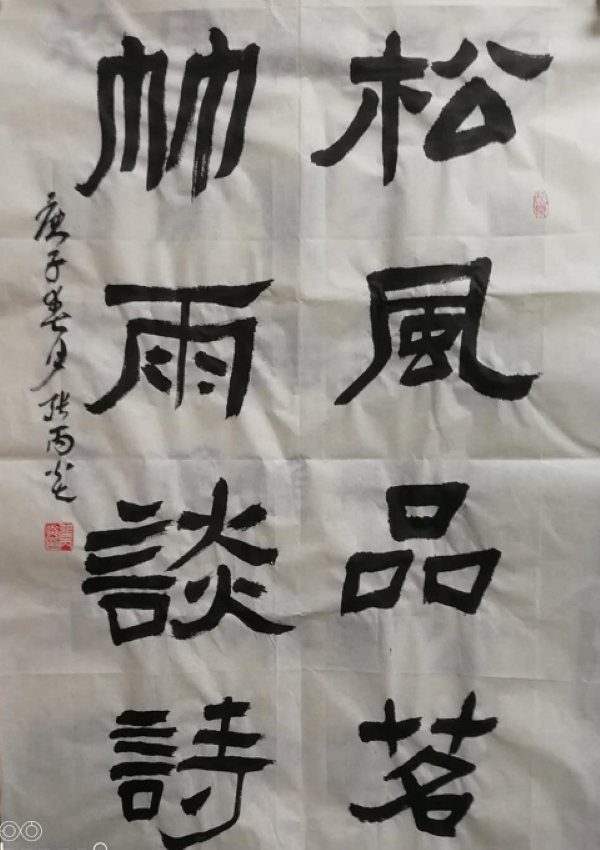 松風品茗
竹雨談詩
庚子春月張丙炎